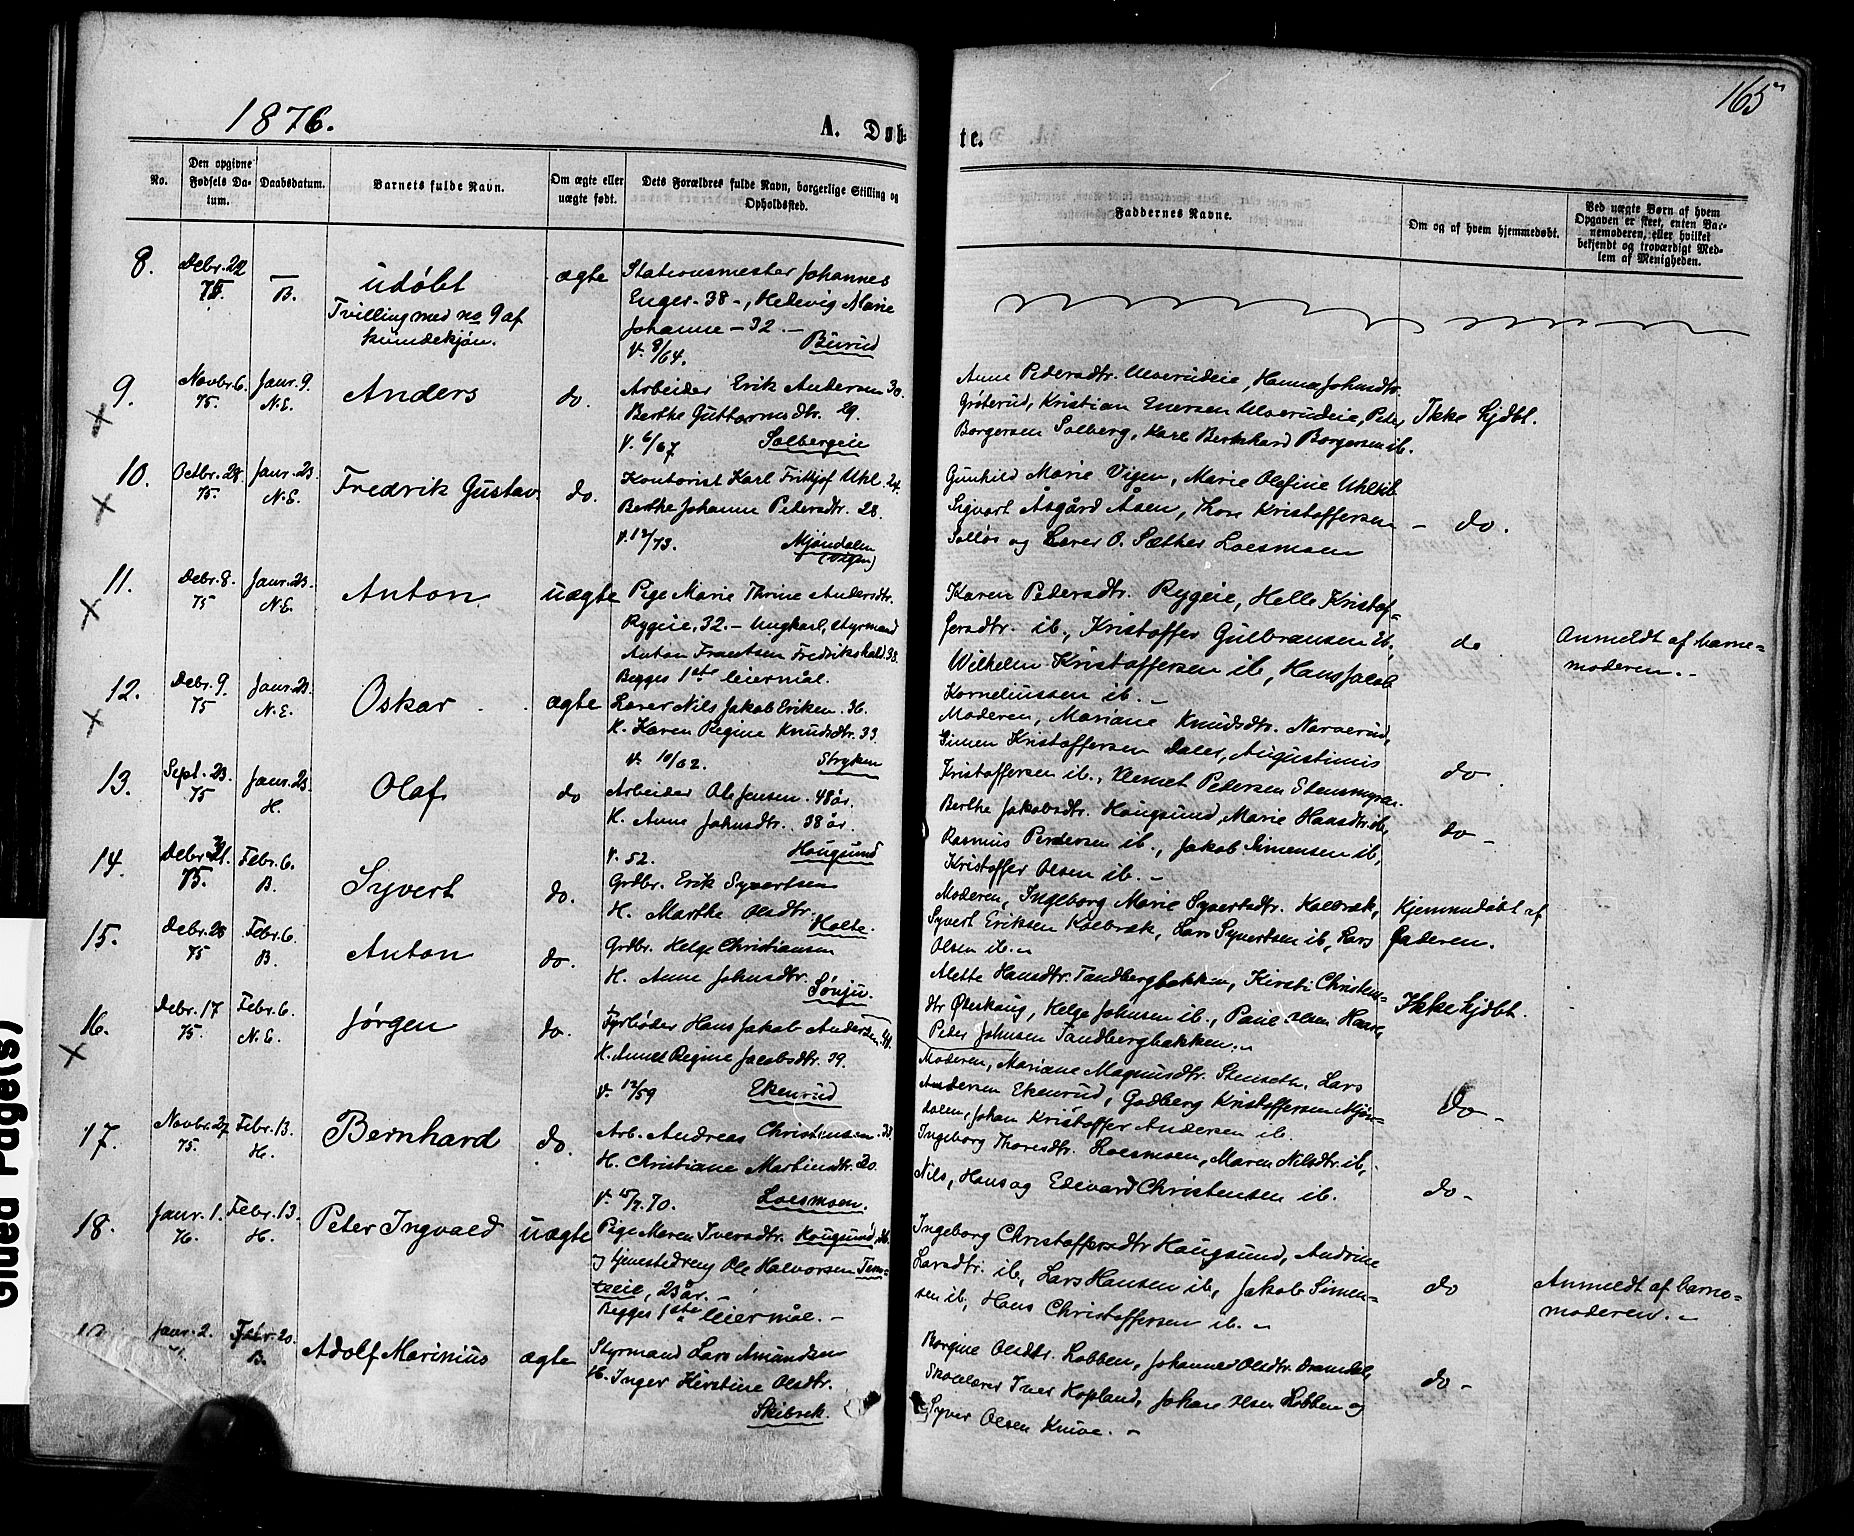 1876.
A. Døb-
te.
165
No.
Den opgivne Fødsels Da-tum.
Daabsdatum.
Barnets fulde Navn.
Om ægte eller uægte født.
Dets Forældres fulde Navn, borgerlige Stilling og Opholdssted.
Faddernes Navne.
Om og af hvem hjemmedøbt.
Ved uægte Børn af hvem Opgaven er skeet, enten Bar-nemoderen, eller hvilket bekjendt og troværdigt Med-lem af Menigheden.
8.
Debr. 22
75.
—
B.
udøbt
Tvilling med no 9 af
kvindekjøn.
ægte
Stationsmester Johannes
Enger. 38 -, Hedevig Marie
Johanne - 32. -
V. 8/64. Burud
9.
Novbr. 6.
75.
Janr. 9.
N.E.
Anders
do.
Arbeider Erik Andersen 30.
Berthe Guttormsdtr. 29.
V. 6/67 Solbergeie
Anne Pedersdtr. Ulverudeie, Hanna Johnsdtr.
Grøterud, Kristian Enersen Ulverudeie, Peter
Borgersen Solberg, Karl Bernhard Borgersen ib.
Ikke hjdbt.
10.
Octbr. 28.
75.
Janr. 23.
N.E.
Fredrik Gustav
do.
Kontorist Karl Frithjof Uhl. 24.
Berthe Johanne Pedersdtr. 28.
V. 12/73. Mjøndalen
(Vigen)
Gunhild Marie Vigen, Marie Olefine Uhl ib
Sigvart Åsgård Åsen, Thor Kristoffersen
Solløs og Lærer O. Sæther Loesmoen
- do.
11.
Debr. 8.
75
Janr. 23.
N.E.
Anton
uægte
Pige Marie Thrine Andersdtr.
Rygeie, 32. - Ungkarl, styrmand
Anton Frantsen Fredrikshald 38.
Begges 1ste leiermål.
Karen Pedersdtr. Rygeie, Helle Kristof-
fersdtr. ib., Kristoffer Gulbransen ib,
Wilhelm Kristoffersen ib, Hans Jacob
Korneliussen ib. -
do
Anmeldt af barne-
moderen. -
12.
Debr. 9
75
Janr. 23.
N.E.
Oskar
ægte
Lærer Nils Jakob Eriksen. 36.
H. Karen Regine Knudsdtr. 33.
V. 10/62. Stryken
Moderen, Mariane Knudsdtr. Narverud,
Simen Kristoffersen Daler, Augustinus
Kristoffersen ib., Klemet Pedersen Stensmyra.
do.
13.
Sept. 23.
75
Janr. 23.
H.
Olaf
do
Arbeider Ole Jensen. 48 år.
H. Anne Johnsdtr. 38 år.
V. 52. Hougsund
Berthe Jakobsdtr. Hougsund, Marie Hansdtr. ib,
Rasmus Pedersen ib., Jakob Simensen ib,
Kristoffer Olsen ib. -
do -
14.
Debr. 31.
75.
Febr. 6.
B.
Syvert
do.
Grdbr. Erik Syvertsen
H. Marthe Olsdtr.
Holte.
Moderen, Ingeborg Marie Syvertsdtr. Kolbræk,
Syvert Eriksen Kolbræk, Lars Syvertsen ib, Lars
Olsen ib. -
Hjemmedøbt af
Faderen.
15.
Debr. 28
75
Febr. 6.
B.
Anton
do.
Grdbr. Helge Christiansen
H. Anne Johnsdtr.
Sønju.
Alette Hansdtr. Tandbergbakken, Kirsti Christens-
dtr Østerhaug, Helge Johnsen ib., Paul Olsen
Peter Johnsen Tandbergbakken. -
Ikke hjdbt.
16.
Debr. 17
75.
Febr. 6.
N.E.
Jørgen
do.
Fyrbøder Hans Jakob Andersen
H. Anne Regine Jacobsdtr. 39.
V. 12/59 Ekenrud
Moderen, Mariane Magnusdtr. Stenseth, Lars
Andersen Ekenrud, Godberg Kristoffersen Mjøn-
dalen, Johan Kristoffer Andersen ib.
do -
17.
Novbr. 27
75.
Febr. 13.
H.
Bernhard
do.
Arb. Andreas Christensen. 33.
H. Christiane Martinsdtr. 30.
V. 15/7. 70. Loesmoen.
Ingeborg Thoresdtr. Loesmoen, Maren Nilsdtr. ib,
Nils, Hans og Edevard Christensen ib.
do -
18.
Janr. 1.
76.
Febr. 13.
H.
Peter Ingvald
uægte
Pige Maren Iversdtr. Hougsund,
og tjenestedreng Ole Halvorsen Tem-
teeie, 23 år. -
Begges 1ste leiermål. -
Ingeborg Christoffersdtr Hougsund, Andrine
Larsdtr. ib, Lars Hansen ib, Jakob Simen-
sen ib, Hans Christoffersen ib. -
do
Anmeldt af barne-
moderen. -
Janr. 2.
Febr. 20.
B.
Adolf Marinius
ægte
Styrmand Lars Amundsen
H. Inger Kirstine Olsdtr.
Skibrek.
Borgine Olsdtr. Lobben, Johanne Olsdtr. Dramdal,
Skolelærer Iver Kopland, Johan Olsen Lobben og
Syver Olsen Knive. -
do -
Glued Page(s)